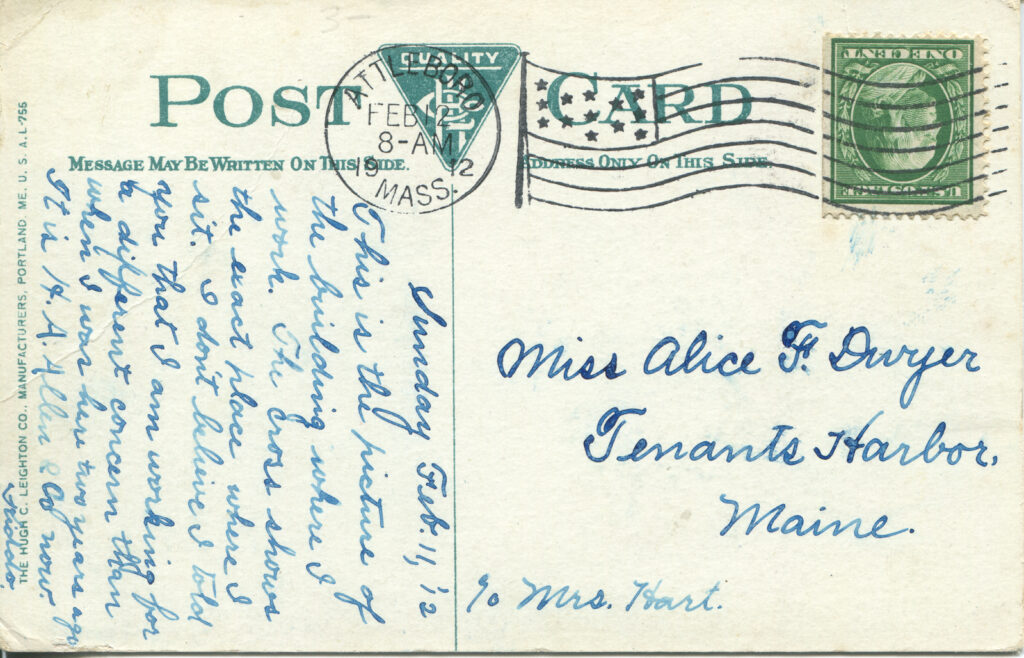 3-
POST CARD
QUALITY
ATTLEBORO
FEB 12
8-AM
19 12
MASS.
MESSAGE MAY BE WRITTEN ON THIS SIDE.
ADDRESS ONLY ON THIS SIDE.
ONE CENT
Sunday Feb. 11, '12
This is the picture of
the building where I
work. The cross shows
the exact place where I
sit. I don't believe I told
you that I am working for
a different concern than
when I was here two years ago
It is H. A. Allen & Co now.
Miss Alice F. Dwyer
Tenants Harbor,
Maine.
c/o Mrs. Hart.
THE HUGH C. LEIGHTON CO., MANUFACTURERS, PORTLAND, ME. U. S. A. L-755